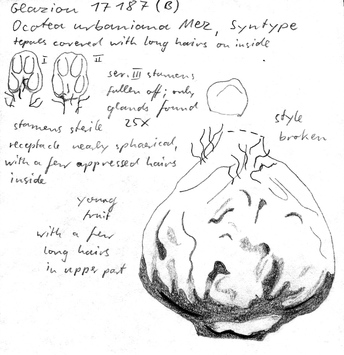 Glaziou 17187 (B)
Ocotea urbaniana Mez, Syntype
tepals covered with long hairs on inside
I
II
ser. III stamens
fallen off; only
glands found
25x
stamens sterile
receptacle nearly sphaerical,
with a few appressed hairs
inside
style
broken
young
fruit
with a few
long hairs
in upper part